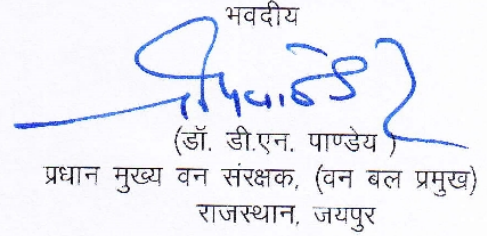 भवदीय
(डॉ. डी.एन. पाण्डेय )
प्रधान मुख्य वन संरक्षक, (वन बल प्रमुख)
राजस्थान, जयपुर